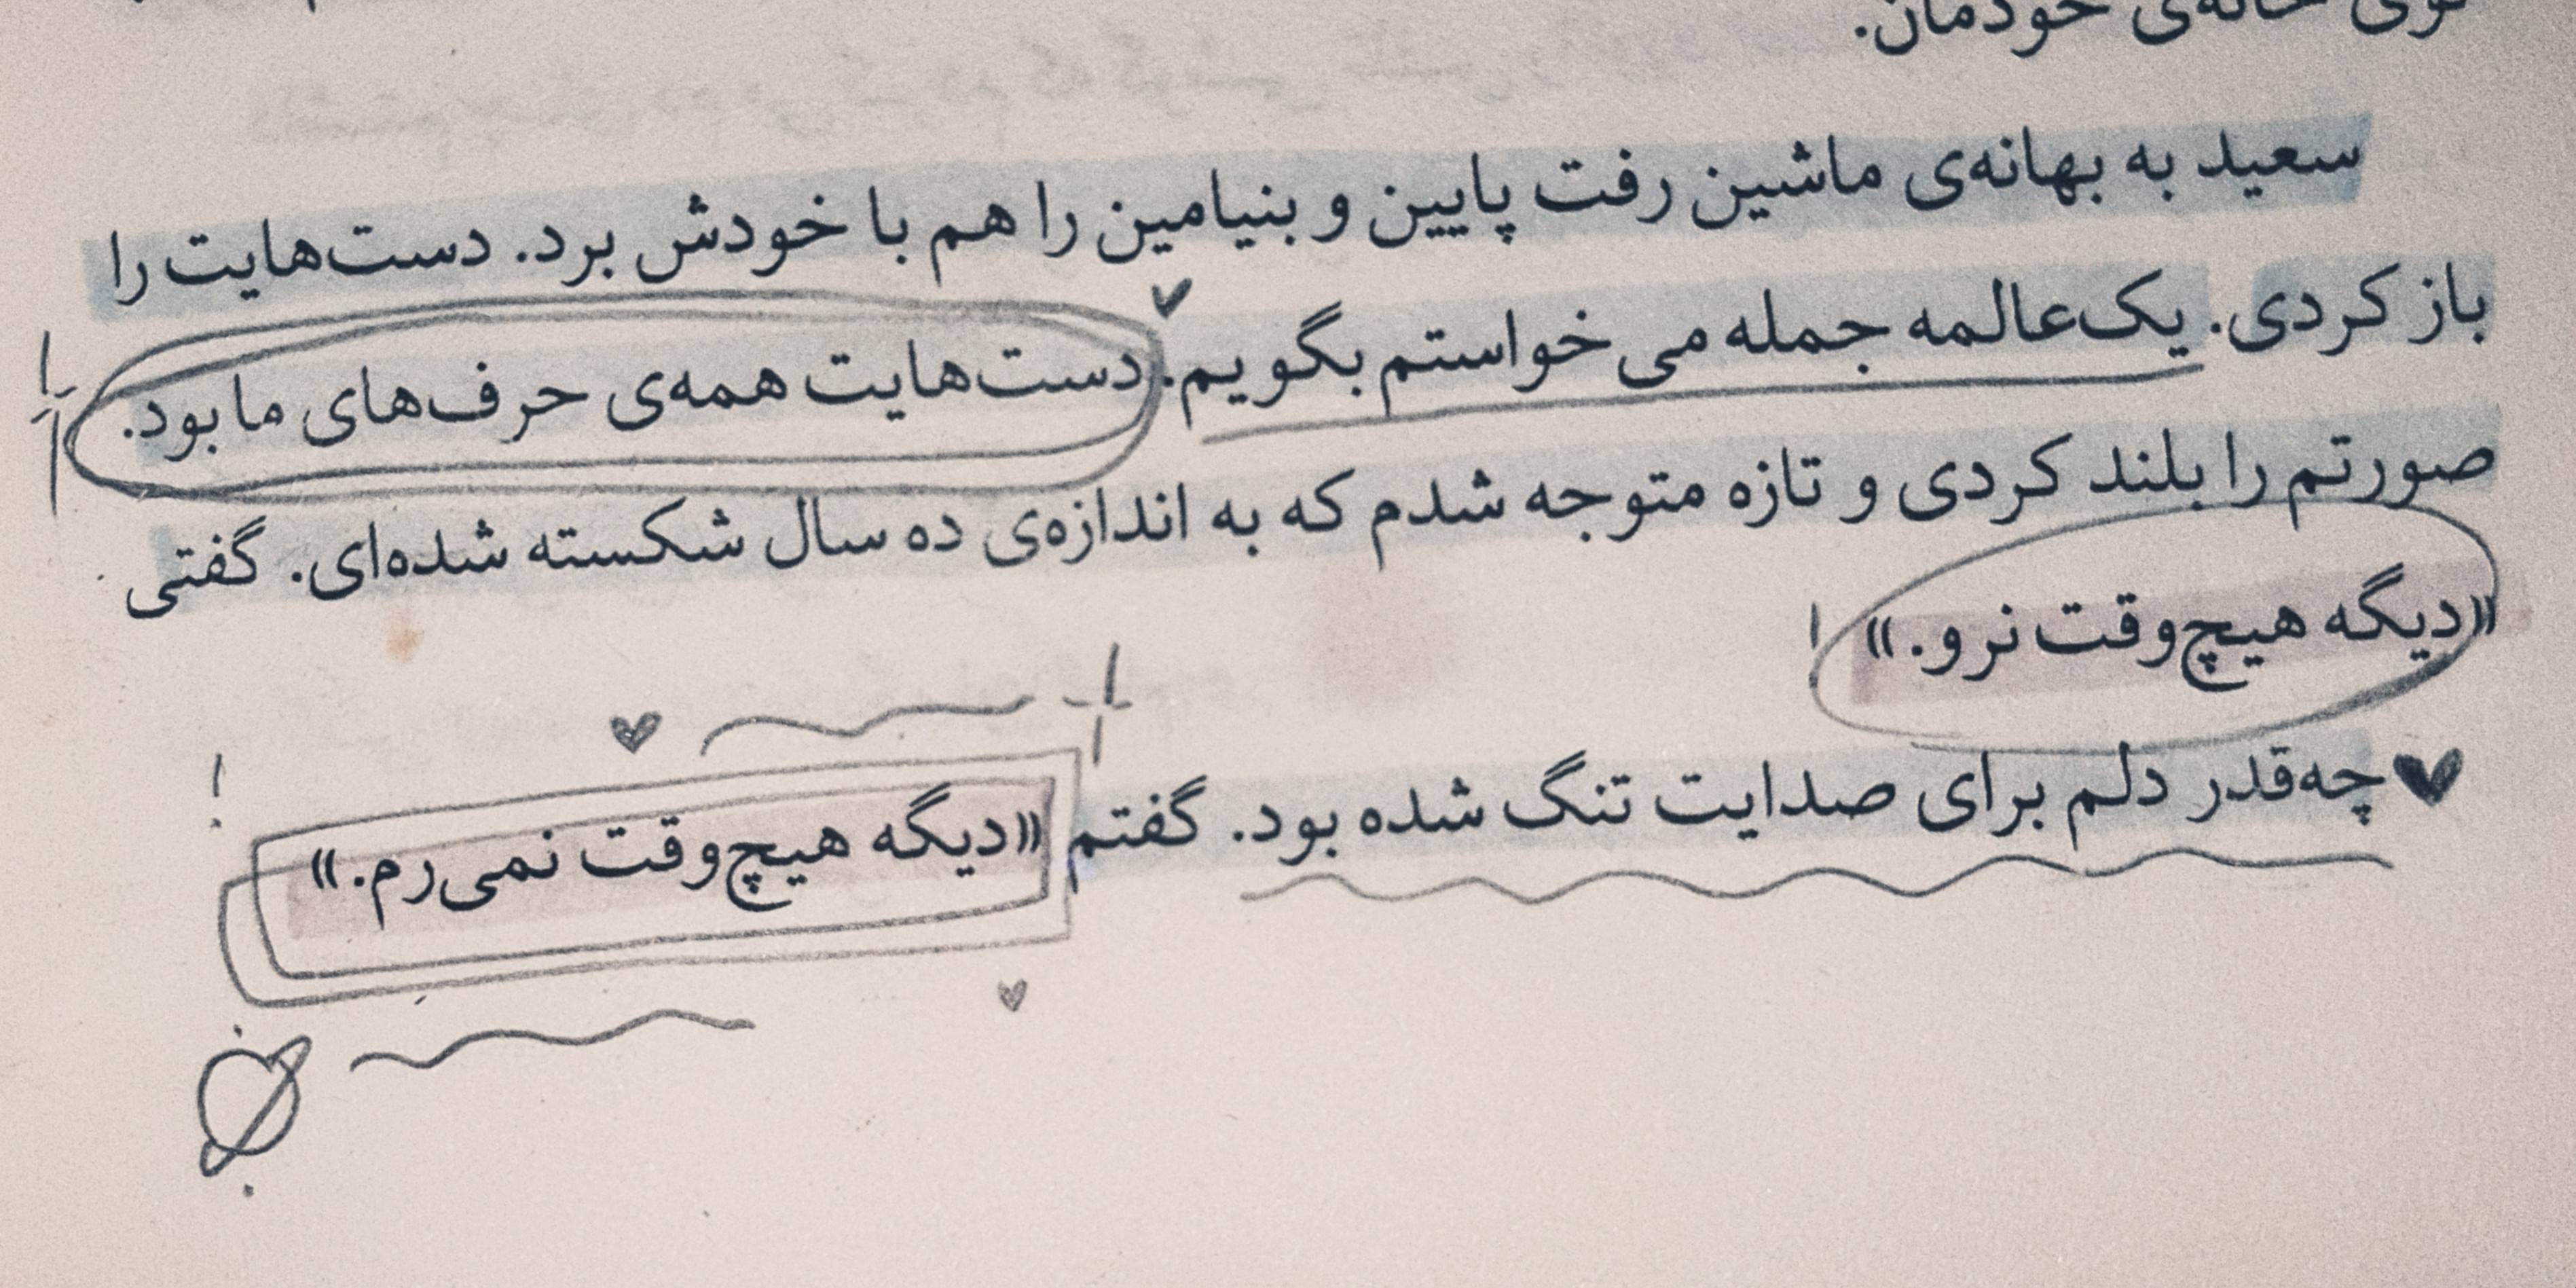 توی خانه‌ی خودمان.
سعید به بهانه‌ی ماشین رفت پایین و بنیامین را هم با خودش برد. دست‌هایت را
باز کردی. یک‌عالمه جمله می‌خواستم بگویم. دست‌هایت همه‌ی حرف‌های ما بود.
صورتم را بلند کردی و تازه متوجه شدم که به اندازه‌ی ده سال شکسته شده‌ای. گفتی
«دیگه هیچ‌وقت نرو.»
چه‌قدر دلم برای صدایت تنگ شده بود. گفتم «دیگه هیچ‌وقت نمی‌رم.»